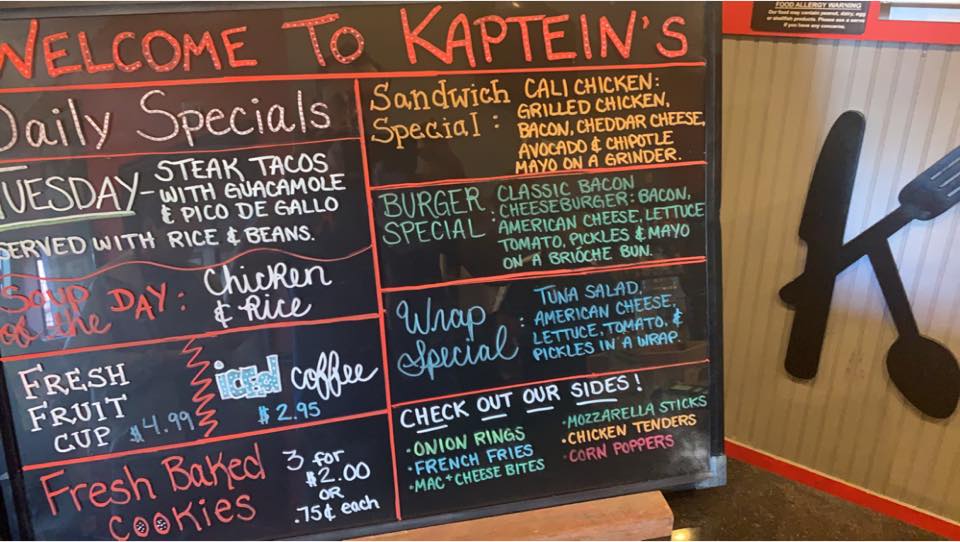 WELCOME TO KAPTEIN'S
Daily Specials
TUESDAY- STEAK TACOS
WITH GUACAMOLE
& PICO DE GALLO
SERVED WITH RICE & BEANS.
Soup
of the DAY:
Chicken
& Rice
FRESH
FRUIT
CUP $4.99
iced coffee
$2.95
Fresh Baked
cookies
3 for
$2.00
OR
.75¢ each
Sandwich
Special:
CALI CHICKEN:
GRILLED CHICKEN,
BACON, CHEDDAR CHEESE,
AVOCADO & CHIPOTLE
MAYO ON A GRINDER.
BURGER
SPECIAL:
CLASSIC BACON
CHEESEBURGER: BACON,
AMERICAN CHEESE, LETTUCE
TOMATO, PICKLES & MAYO
ON A BRIOCHE BUN.
Wrap
Special:
TUNA SALAD,
AMERICAN CHEESE,
LETTUCE, TOMATO, &
PICKLES IN A WRAP.
CHECK OUT OUR SIDES!
•ONION RINGS
•FRENCH FRIES
•MAC+CHEESE BITES
•MOZZARELLA STICKS
•CHICKEN TENDERS
•CORN POPPERS
FOOD ALLERGY WARNING
Our food may contain peanut, dairy, egg
or shellfish products. Please see a serve
if you have any concerns.